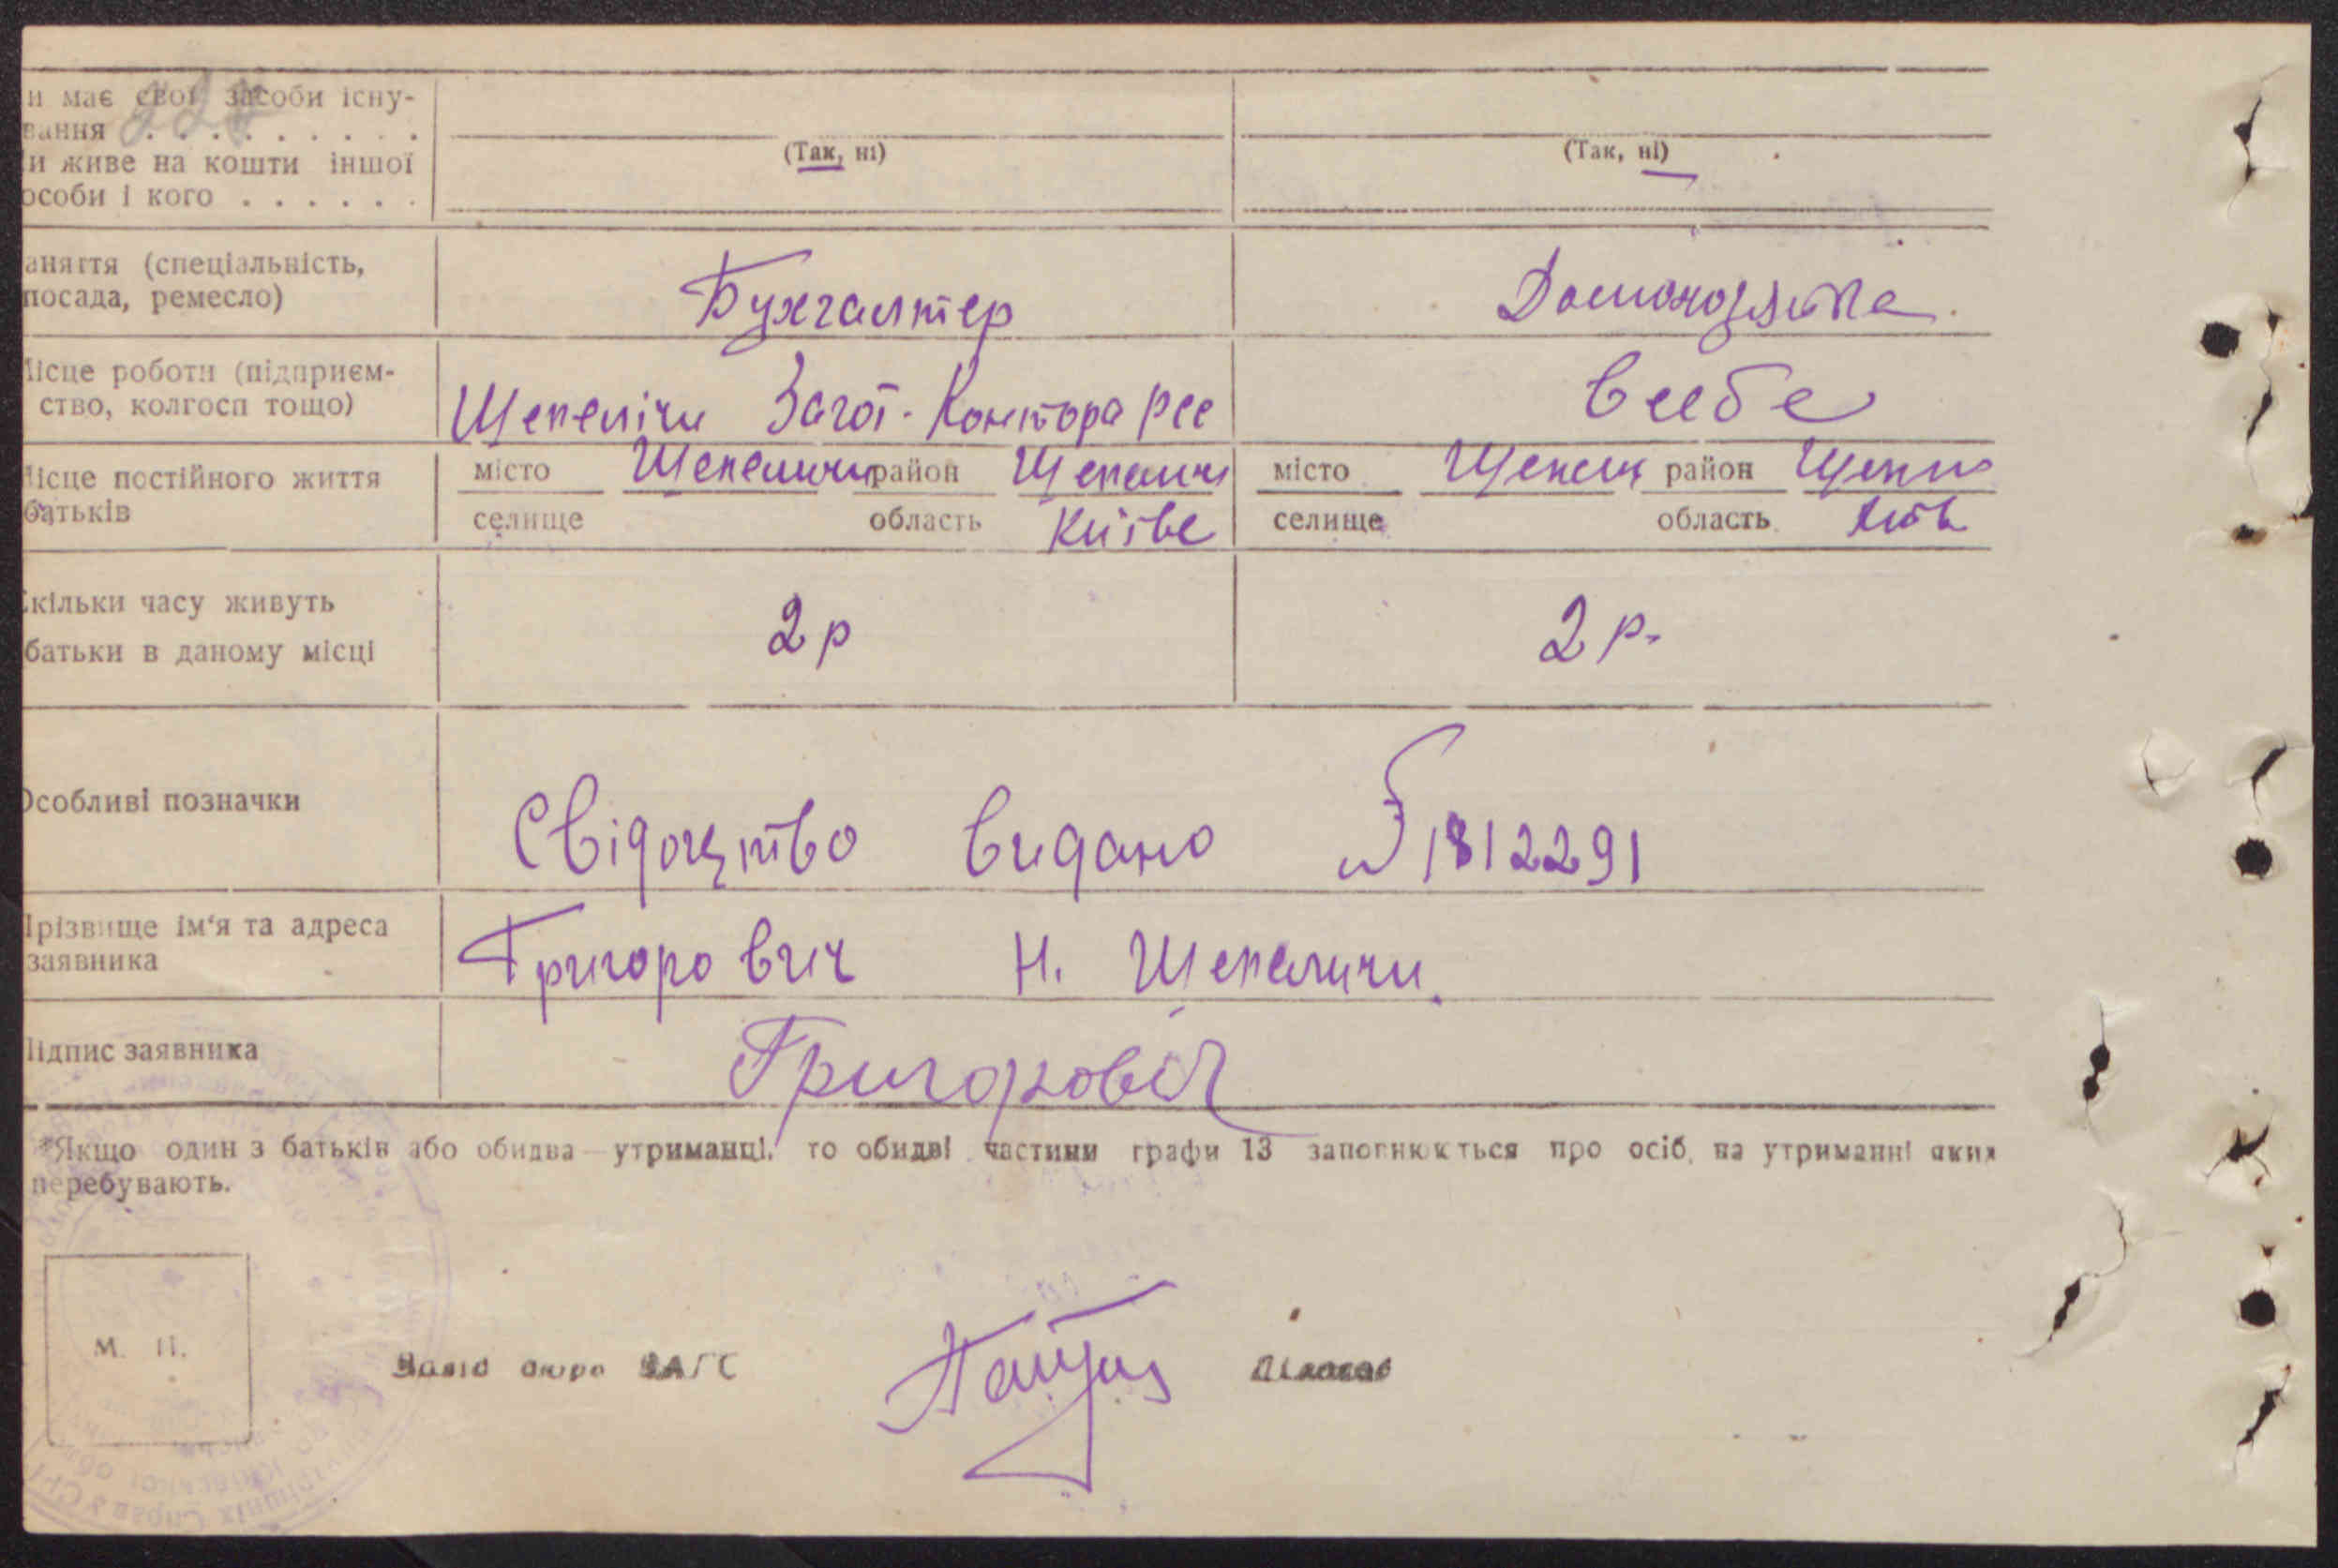 и має свої засоби існу-
вання . . . . . . . . .
и живе на кошти іншої
особи і кого . . . . . .
(Так, ні)
(Так, ні)
аняття (спеціальність,
посада, ремесло)
Бухгалтер
Домохозяйка
Місце роботи (підприєм-
ство, колгосп тощо)
Шепелічи Загот-Контора
Місце постійного життя
батьків
місто Шепеличи район Шепелич
селище область Київс
місто Шепелич район Шепил
селище область Київ
кільки часу живуть
батьки в даному місці
2 р
2 р.
Особливі позначки
Свідоцтво видано № 1812291
Прізвище ім'я та адреса
заявника
Григорович Н. Шепеличи.
Підпис заявника
Григоровіч
*Якщо один з батьків або обидва утриманці, то обидві частини графи 13 заповнюються про осіб, на утриманні яких
перебувають.
М. П.
бюро ЗАГС